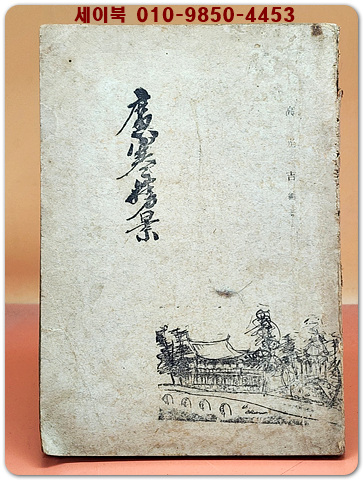 세이북 010-9850-4453
廣寒樓景